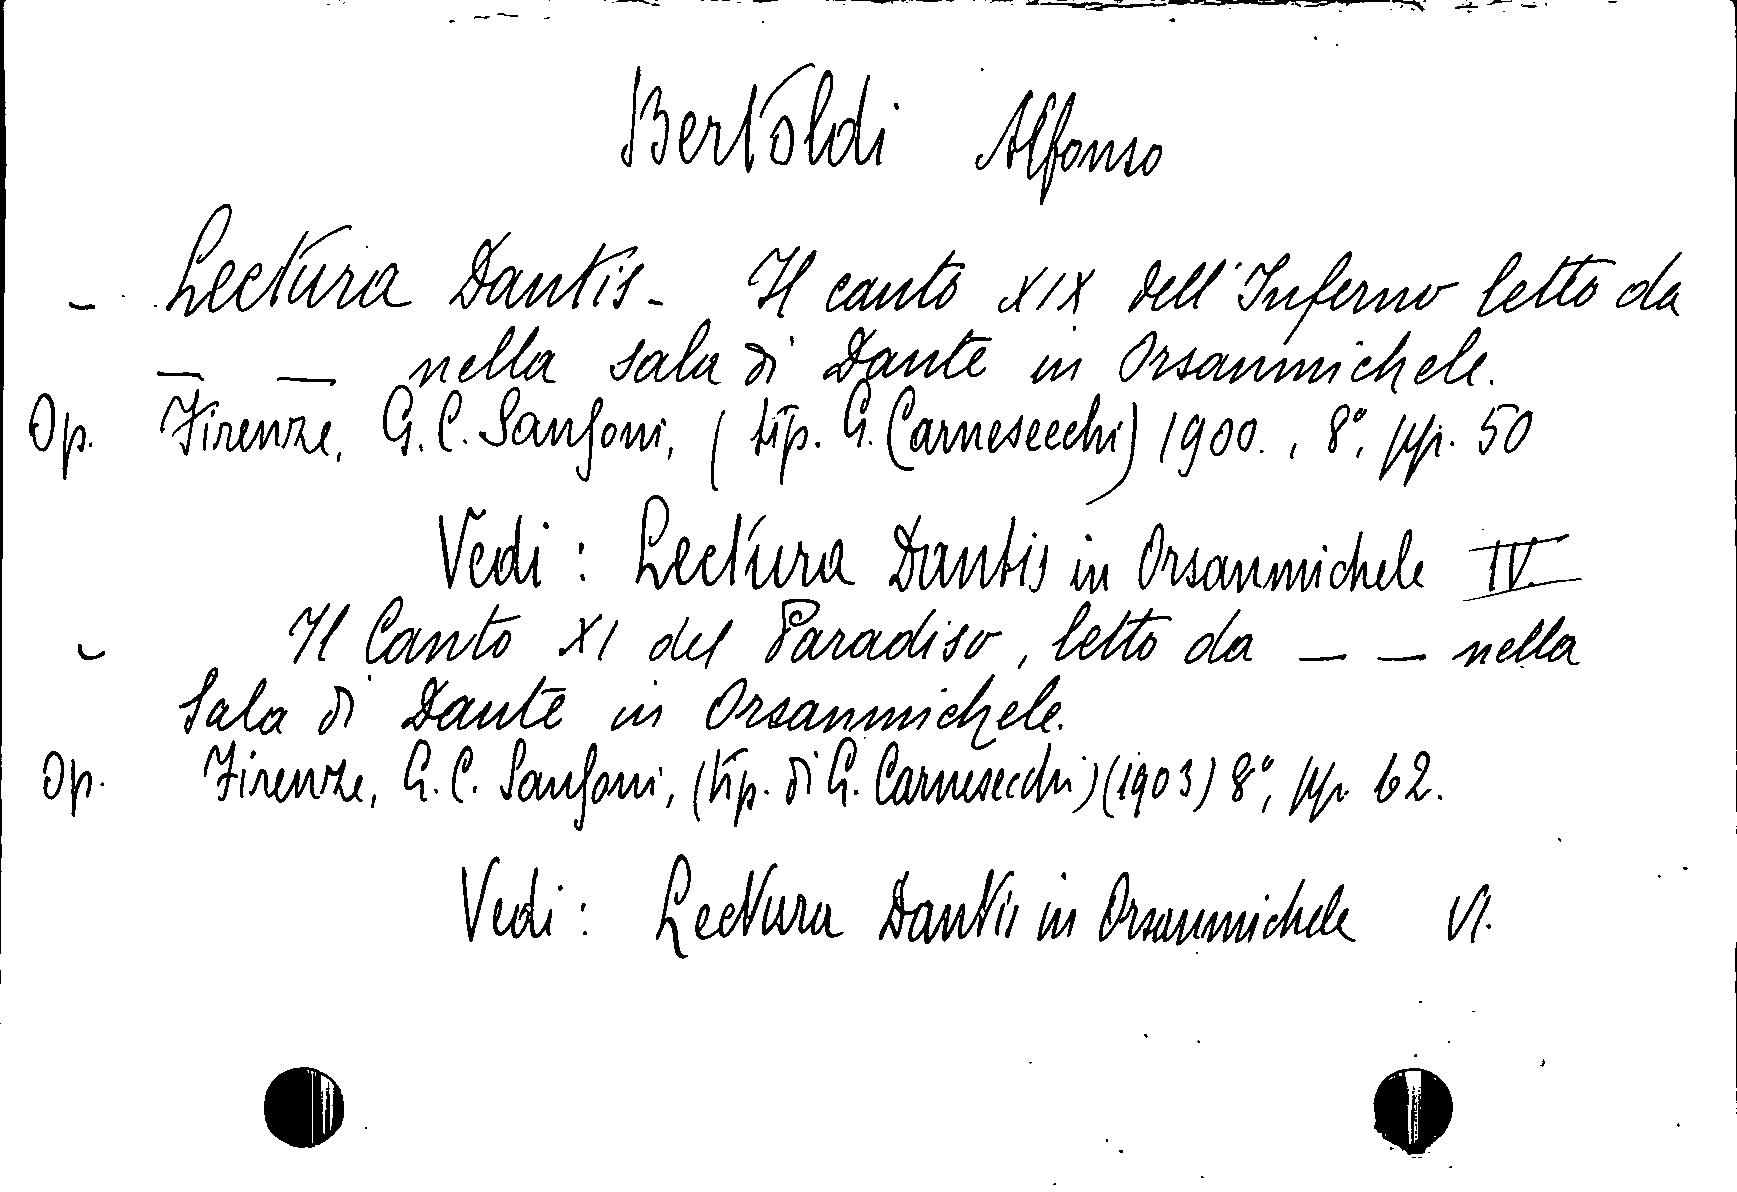 Bertoldi Alfonso
- Lectura Dantis - Il canto XIX dell'Inferno letto da
— — nella sala di Dante in Orsanmichele.
Op. Firenze, G. C. Sansoni, (tip. G. Carnesecchi) 1900., 8°, pp. 50
Vedi: Lectura Dantis in Orsanmichele IV
- Il Canto XI del Paradiso, letto da — — nella
Sala di Dante in Orsanmichele.
Op. Firenze, G. C. Sansoni, (tip. di G. Carnesecchi) (1903) 8°, pp. 62.
Vedi: Lectura Dantis in Orsanmichele VI.